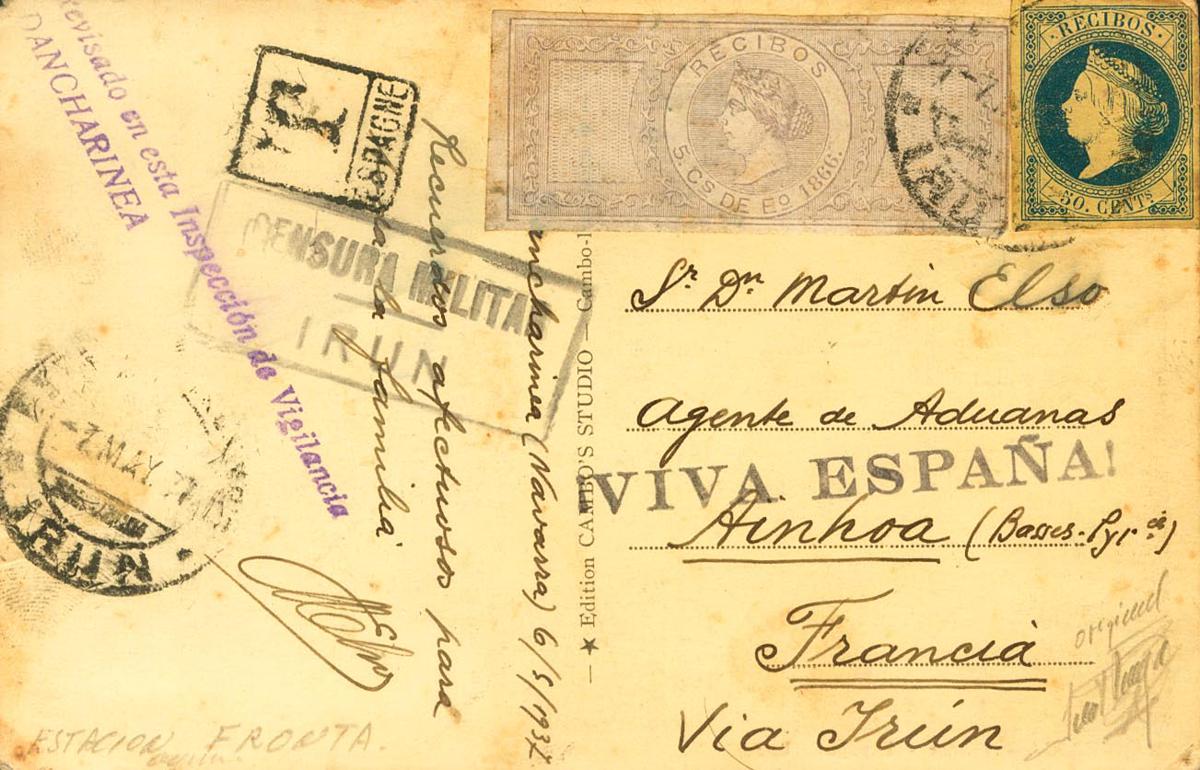 Revisado en esta Inspección de Vigilancia
DANCHARINEA
T
ESPAGNE
CENSURA MILITAR
IRUN
-7.MAY 37
IRUN
Dancharinea (Navarra) 6/5/1937
Recuerdos afectuosos para
toda la familia
★ Edition CAMBO'S STUDIO — Cambo-l
RECIBOS
5. Cs DE Eo 1866.
RECIBOS
50. CENTs
Sr. Dn. Martin Elso
Agente de Aduanas
VIVA ESPAÑA!
Ainhoa (Basses-Pyr.és)
Francia
Via Irún
original
ESTACION FRONTA.